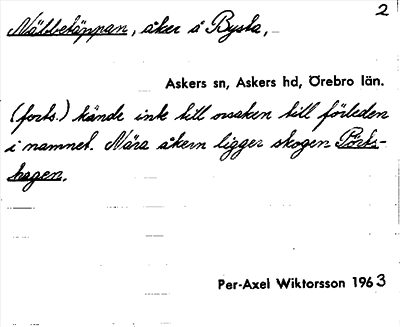 2
Näbbetäppan, åker å Bysta,
Askers sn, Askers hd, Örebro län.
(forts.) kände inte till orsaken till förleden
i namnet. Nära åkern ligger skogen Pörts-
hagen.
Per-Axel Wiktorsson 1963